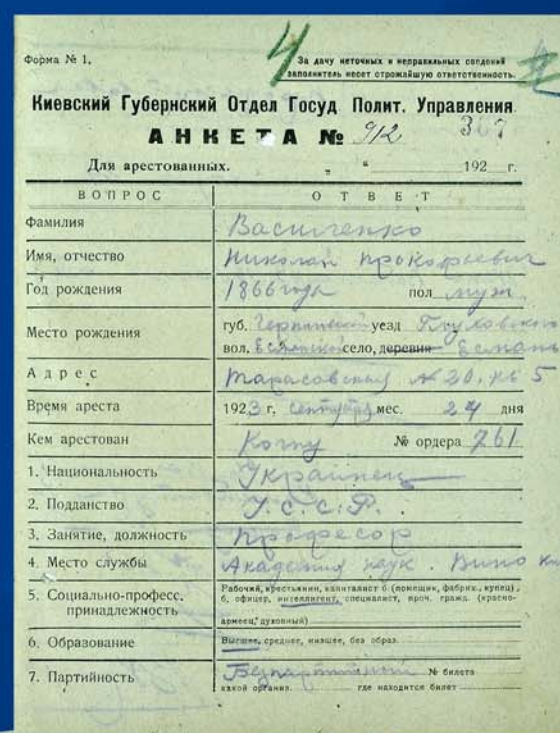 4
Форма № 1.
За дачу неточных и неправильных сведений
заполнитель несет строжайшую ответственность.
Киевский Губернский Отдел Госуд Полит. Управления
АНКЕТА № 912 367
Для арестованных. „ “ 192 г.
ВОПРОС ОТВЕТ
Фамилия Василенко
Имя, отчество Николай Прокофьевич
Год рождения 1866 года пол муж.
Место рождения губ. уезд Глуховского
вол. село, деревня Есмань
Адрес Тарасовская № 20, кв 5
Время ареста 1923 г, сентября мес. 24 дня
Кем арестован № ордера 761
1. Национальность Украинец
2. Подданство У.С.С.Р.
3. Занятие, должность Професор
4. Место службы Академия наук.
5. Социально-професс. принадлежность Рабочий, крестьянин, капиталист б. (помещик, фабрик., купец),
б. офицер, интеллигент, специалист, проч. гражд. (красно-
армеец, духовный)
6. Образование Высшее, среднее, низшее, без образ.
7. Партийность Безпартийный № билета
какой организ. где находится билет